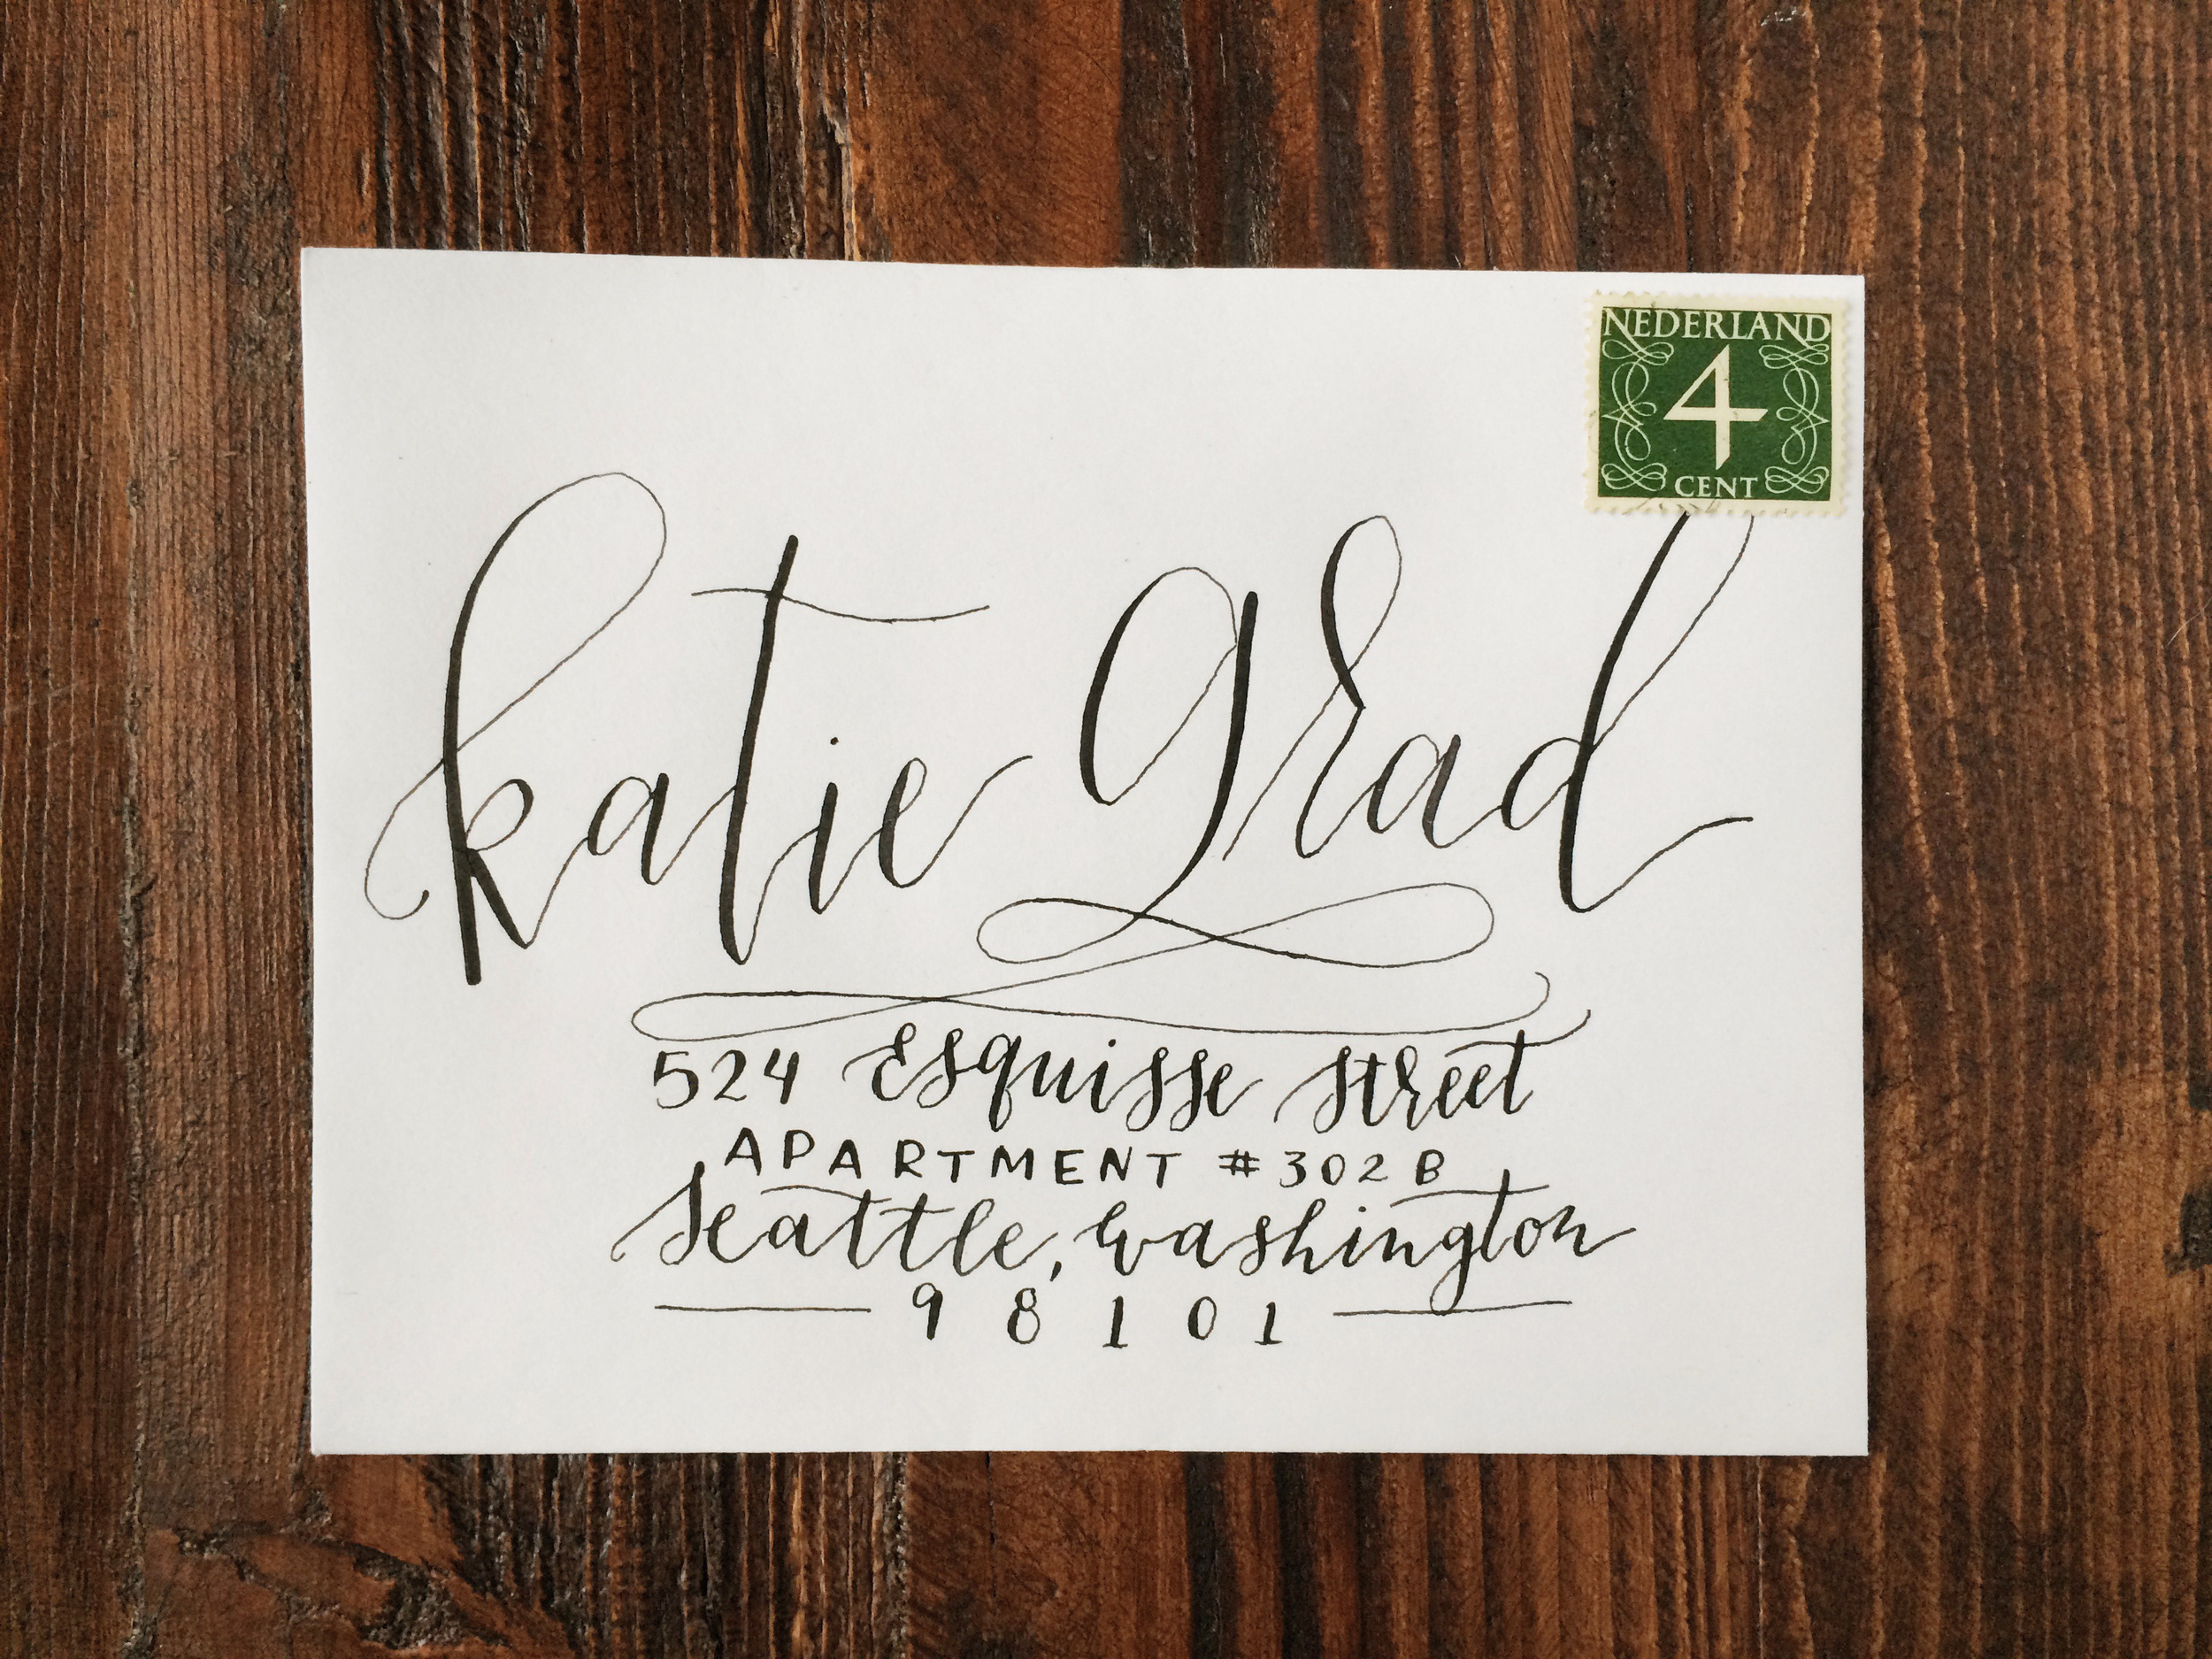 NEDERLAND
4
CENT
katie grad
524 Esquisse street
APARTMENT #302B
seattle, washington
98101